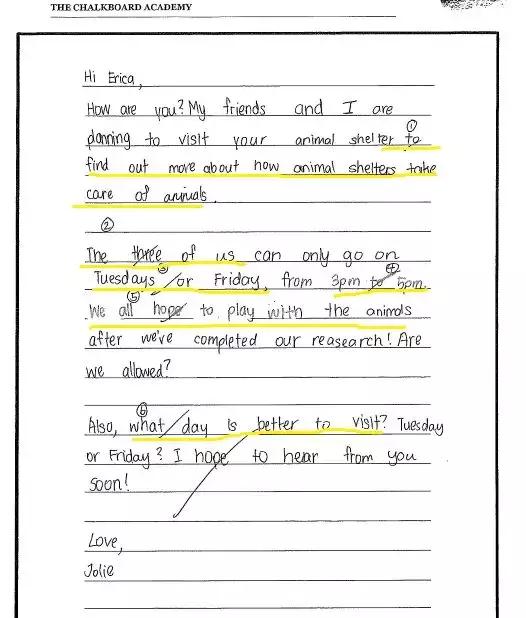 THE CHALKBOARD ACADEMY
Hi Erica,
How are you? My friends and I are
planning to visit your animal shelter to
①
find out more about how animal shelters take
care of animals.
②
The three of us can only go on
③
④
Tuesdays or Friday, from 3pm to 5pm.
⑤
We all hope to play with the animals
after we've completed our reasearch! Are
we allowed?
⑥
Also, what day is better to visit? Tuesday
or Friday? I hope to hear from you
soon!
Love,
Jolie